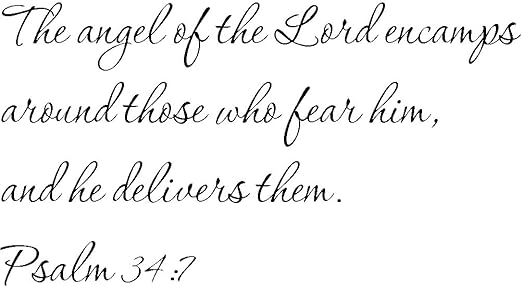 The angel of the Lord encamps
around those who fear him,
and he delivers them.
Psalm 34:7